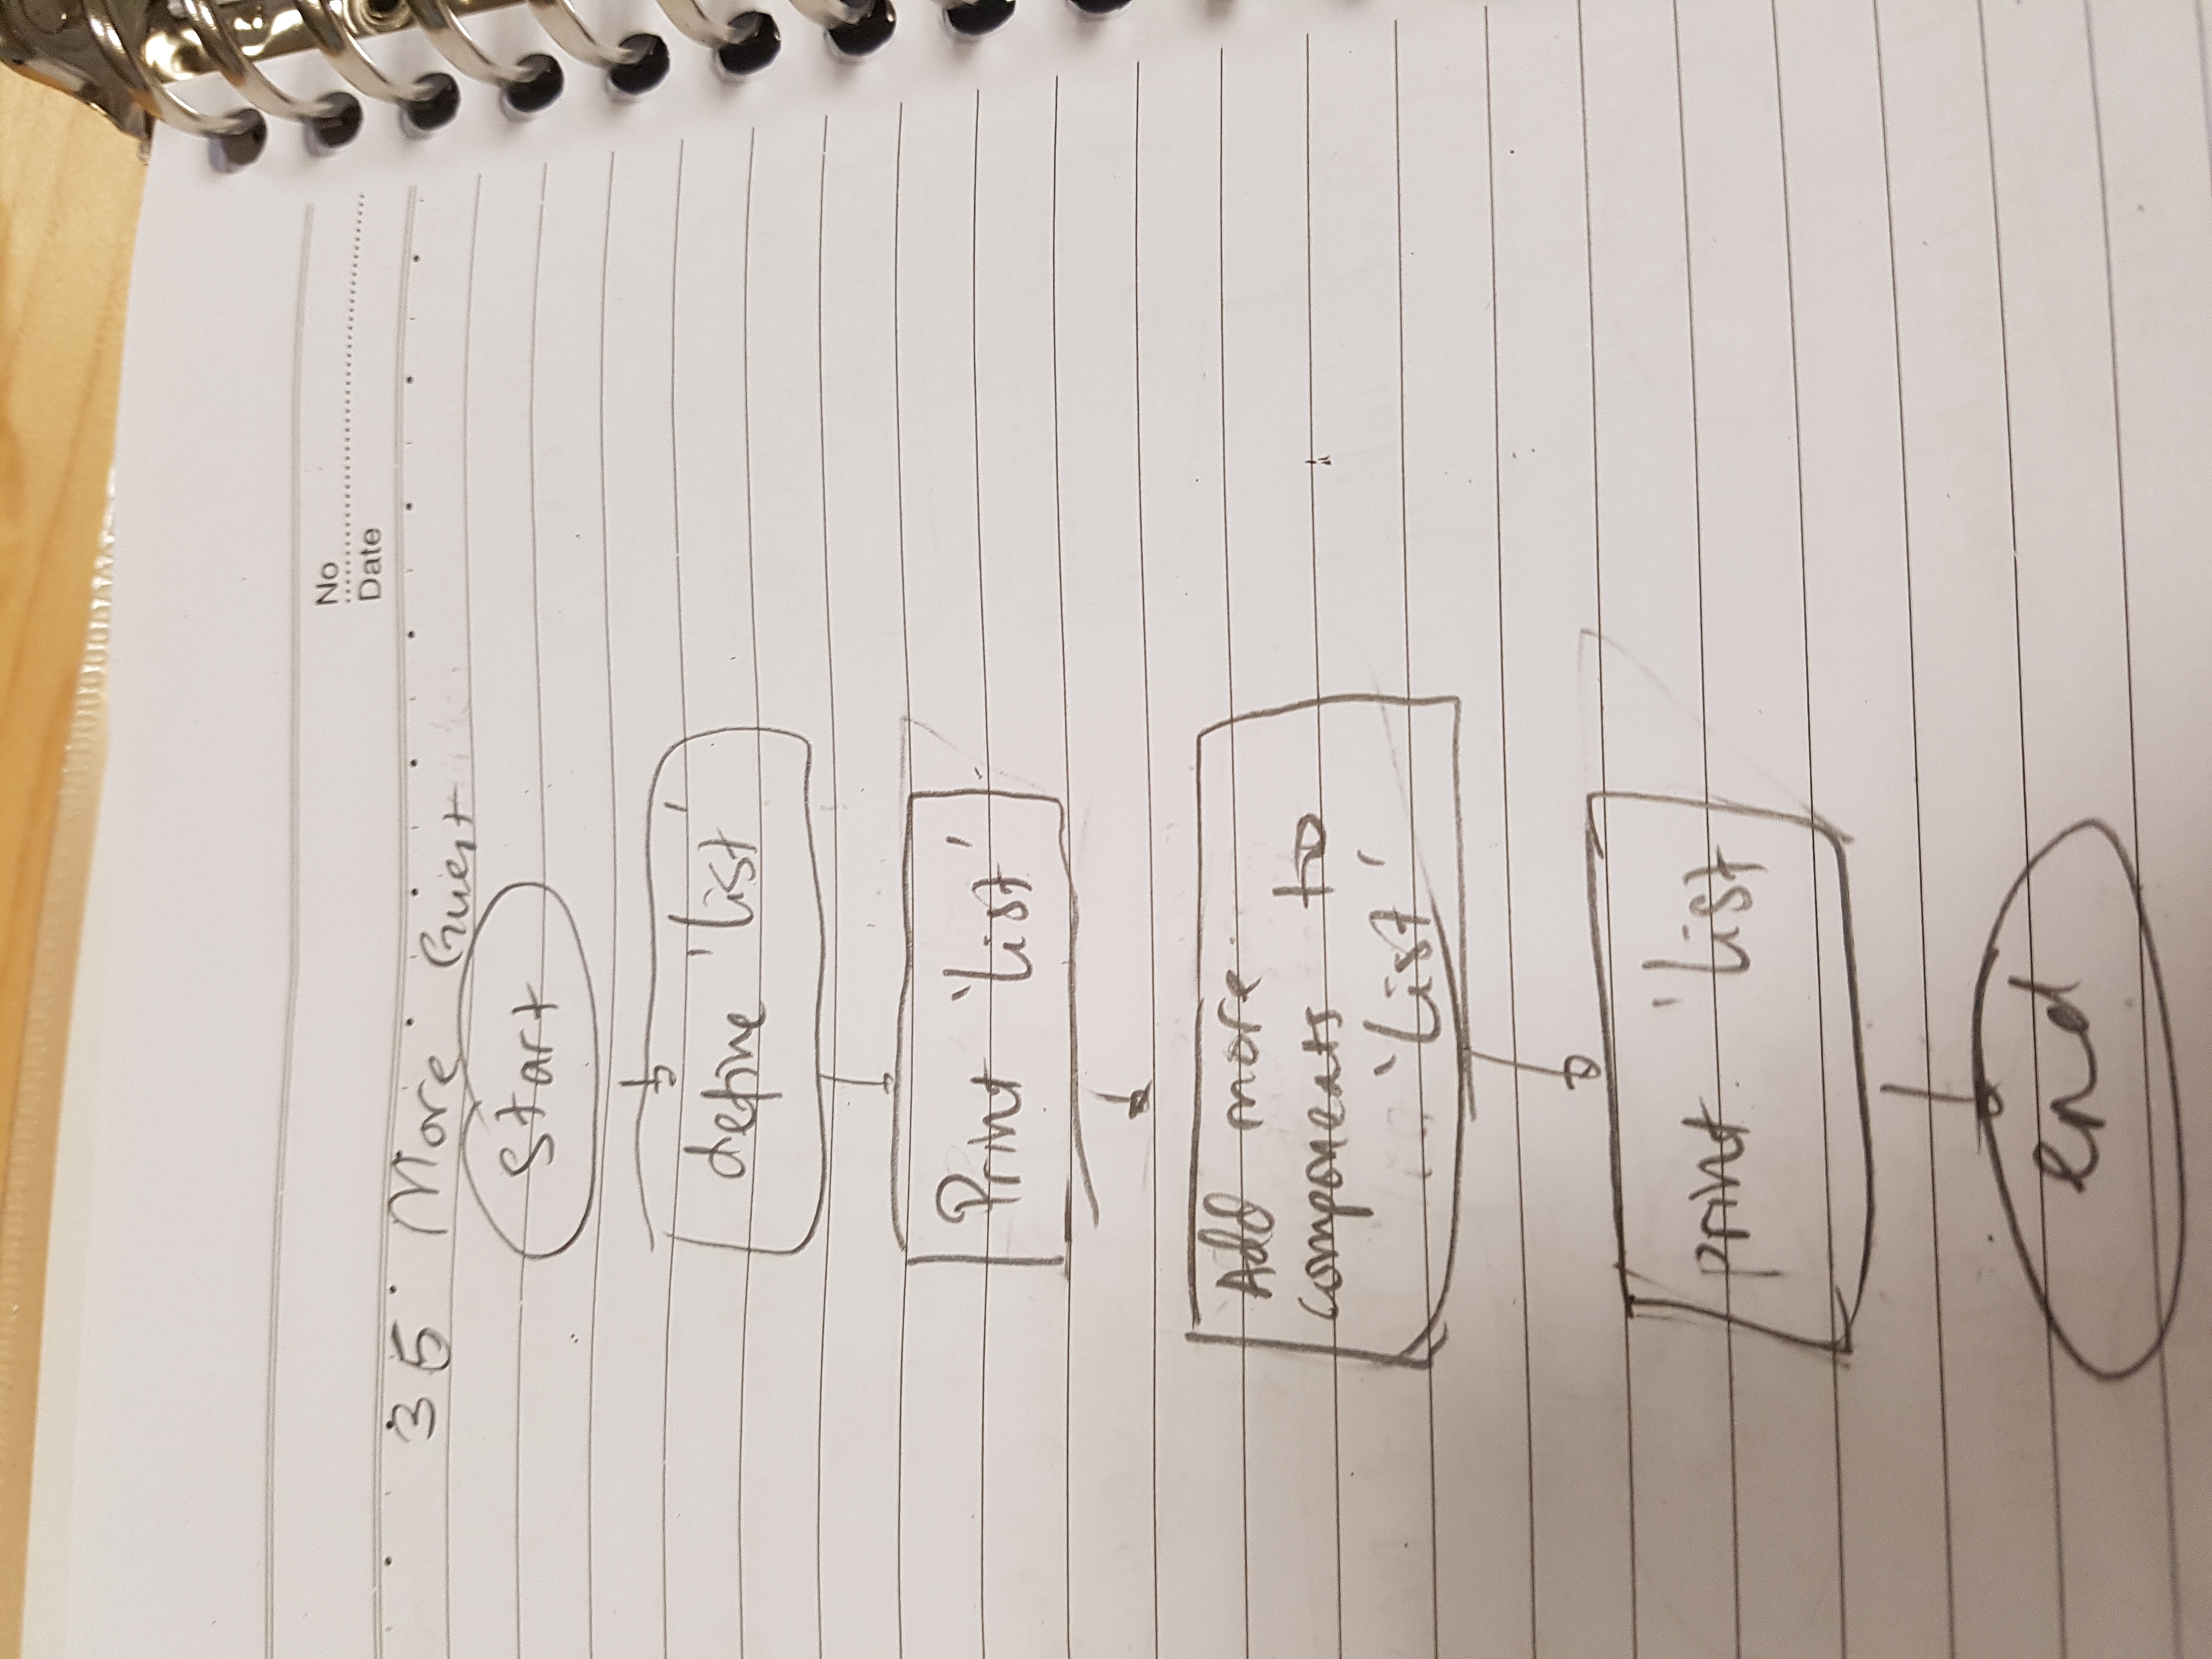 No
Date
35 More Guest
start
define 'list'
Print 'list'
Add more
components to
'list'
print 'list
end